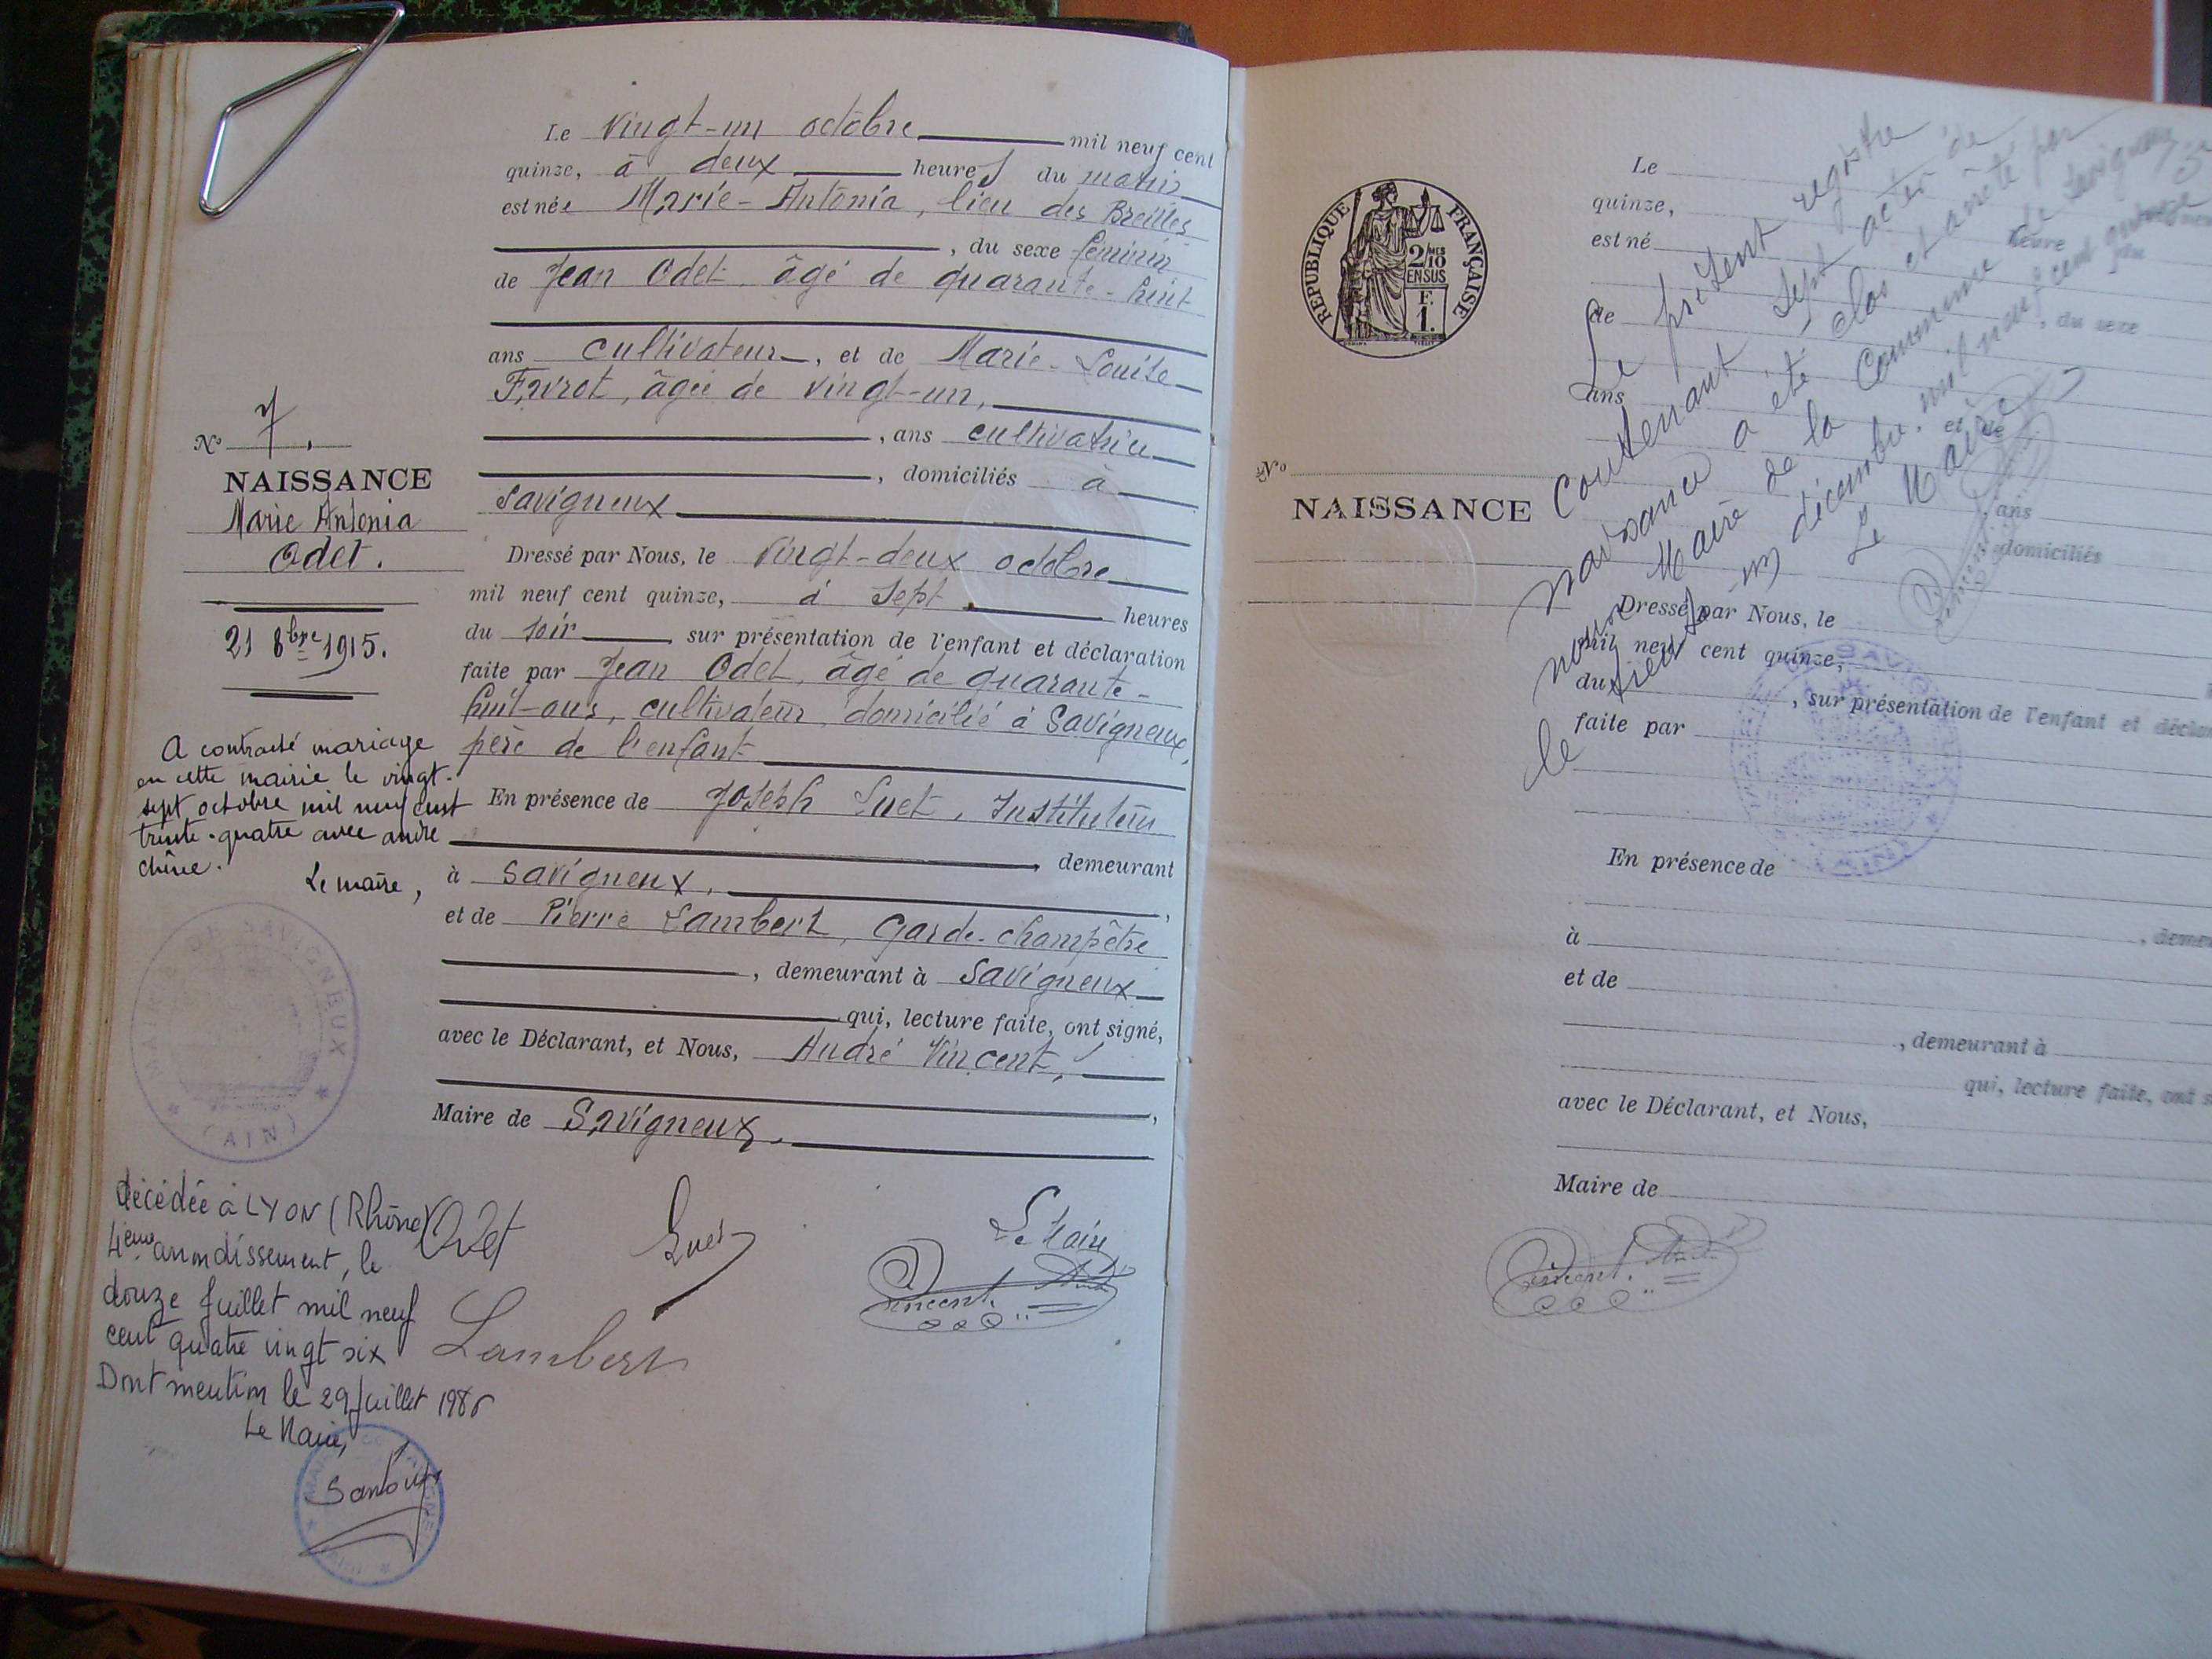 Le vingt-un octobre mil neuf cent
quinze, à deux heures du matin
est née Marie-Antonia, lieu des Breilles
, du sexe féminin
de Jean Odet, âgé de quarante-huit
ans cultivateur, et de Marie-Louise
âgée de vingt-un,
, ans cultivatrice
, domiciliés à
Savigneux
Dressé par Nous, le vingt-deux octobre
mil neuf cent quinze, à sept heures
du soir, sur présentation de l'enfant et déclaration
faite par Jean Odet, âgé de quarante-
huit-ans, cultivateur, domicilié à Savigneux,
père de l'enfant
En présence de Joseph Luet, Instituteur
demeurant
à Savigneux,
et de Pierre Lambert, garde-champêtre
, demeurant à Savigneux
qui, lecture faite, ont signé,
avec le Déclarant, et Nous, André Vincent,
Maire de Savigneux.
Odet
Luet
Le Maire
Vincent André
Lambert
N° 7.
NAISSANCE
Marie Antonia
Odet.
21 8bre 1915.
A contracté mariage
en cette mairie le vingt-
sept octobre mil neuf cent
trente-quatre avec andré
chêne.
Le maire,
MAIRIE DE SAVIGNEUX
(AIN)
décédée à LYON (Rhône)
4ème arrondissement, le
douze Juillet mil neuf
cent quatre vingt six
Dont mention le 29 Juillet 1986
Le Maire,
RÉPUBLIQUE FRANÇAISE
2/10 MES
EN SUS
F.
1.
N°
NAISSANCE
Le
quinze,
heure du
est né
, du sexe
de
ans
et de
, ans
domiciliés
Dressé par Nous, le
mil neuf cent quinze,
du , sur présentation de l'enfant et
faite par
En présence de
à
et de
, demeurant à
qui, lecture faite, ont
avec le Déclarant, et Nous,
Maire de
Le présent registre
contenant sept actes de
naissance a été clos et arrêté par
nous Maire de la Commune de Savigneux
le trente un décembre mil neuf cent quinze
Le Maire
Vincent André